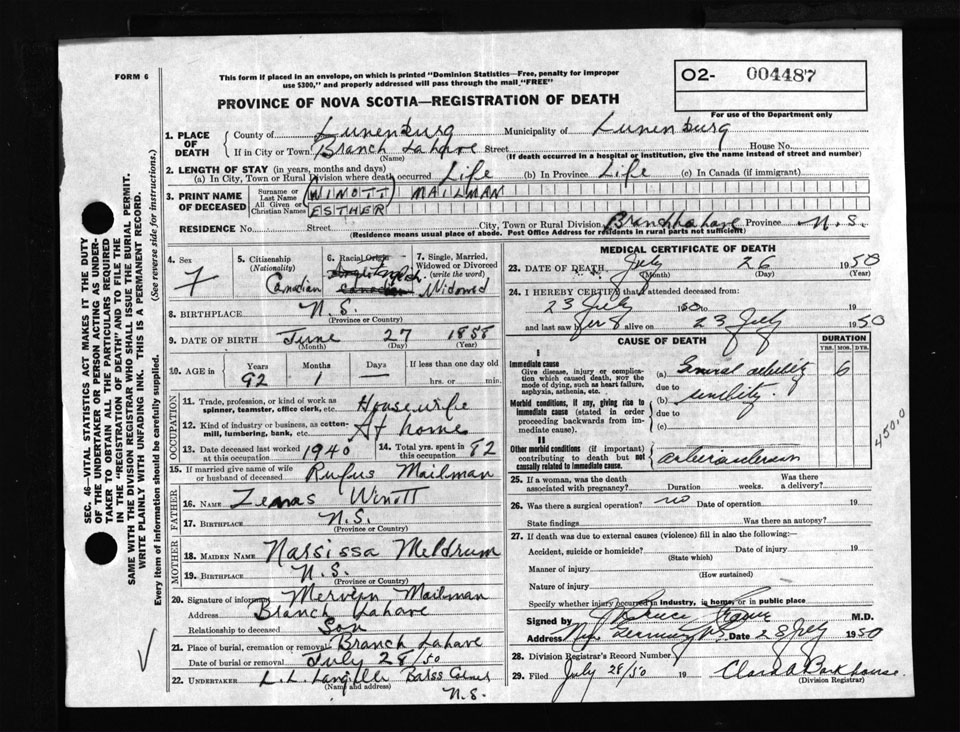 FORM 6
This form if placed in an envelope, on which is printed "Dominion Statistics—Free, penalty for improper
use $300," and properly addressed will pass through the mail "FREE"
O2- 004487
For use of the Department only
PROVINCE OF NOVA SCOTIA—REGISTRATION OF DEATH
SEC. 46—VITAL STATISTICS ACT MAKES IT THE DUTY
OF THE UNDERTAKER OR PERSON ACTING AS UNDER-
TAKER TO OBTAIN ALL THE PARTICULARS REQUIRED
IN THE "REGISTRATION OF DEATH" AND TO FILE THE
SAME WITH THE DIVISION REGISTRAR WHO SHALL ISSUE THE BURIAL PERMIT.
WRITE PLAINLY WITH UNFADING INK. THIS IS A PERMANENT RECORD.
Every item of information should be carefully supplied. (See reverse side for instructions.)
1. PLACE OF DEATH County of Lunenburg Municipality of Lunenburg
If in City or Town Branch Lahave Street House No.
(Name) (If death occurred in a hospital or institution, give the name instead of street and number)
2. LENGTH OF STAY (in years, months and days)
(a) In City, Town or Rural Division where death occurred Life (b) In Province Life (c) In Canada (if immigrant)
3. PRINT NAME OF DECEASED
Surname or Last Name (WINOTT) MAILMAN
All Given or Christian Names ESTHER
RESIDENCE No. Street City, Town or Rural Division Branch Lahave Province N.S.
(Residence means usual place of abode. Post Office Address for residents in rural parts not sufficient)
4. Sex F
5. Citizenship (Nationality) Canadian
6. Racial Origin
7. Single, Married, Widowed or Divorced (write the word) Widowed
8. BIRTHPLACE N.S.
(Province or Country)
9. DATE OF BIRTH June 27 1858
(Month) (Day) (Year)
10. AGE in Years 92 Months 1 Days — If less than one day old
hrs. or min.
OCCUPATION
11. Trade, profession or kind of work as spinner, teamster, office clerk, etc. Housewife
12. Kind of industry or business, as cotton-mill, lumbering, bank, etc. At home
13. Date deceased last worked 1940 14. Total yrs. spent in 82
15. If married give name of wife or husband of deceased Rufus Mailman
FATHER
16. NAME Zenas Winott
17. BIRTHPLACE N.S.
(Province or Country)
MOTHER
18. MAIDEN NAME Narsissa Meldrum
19. BIRTHPLACE N.S.
(Province or Country)
20. Signature of informant Mervyn Mailman
Address Branch Lahave
Relationship to deceased Son
21. Place of burial, cremation or removal Branch Lahave
Date of burial or removal July 28/50
22. UNDERTAKER L. L. Langille Barss Corner
(Name and address) N.S.
MEDICAL CERTIFICATE OF DEATH
23. DATE OF DEATH July 26 1950
(Month) (Day) (Year)
24. I HEREBY CERTIFY that I attended deceased from:
23 July 1950 to 19
and last saw her alive on 23 July 1950
CAUSE OF DEATH DURATION
YRS. MOS. DYS.
I
Immediate cause
Give disease, injury or complication which caused death, NOT the mode of dying, such as heart failure, asphyxia, asthenia, etc.
(a) General debility 6
due to
Morbid conditions, if any, giving rise to immediate cause (stated in order proceeding backwards from immediate cause).
(b) senility.
due to
(c)
II
Other morbid conditions (if important) contributing to death but not causally related to immediate cause.
450.0
25. If a woman, was the death associated with pregnancy? Duration weeks. Was there a delivery?
26. Was there a surgical operation? no Date of operation 19
State findings Was there an autopsy?
27. If death was due to external causes (violence) fill in also the following:
Accident, suicide or homicide? Date of injury 19
(State which)
Manner of injury
(How sustained)
Nature of injury
Specify whether injury occurred in industry, in home, or in public place
Signed by M.D.
Address Date 28 July 1950
28. Division Registrar's Record Number
29. Filed July 28/50 19 Clara A Barkhouse
(Division Registrar)